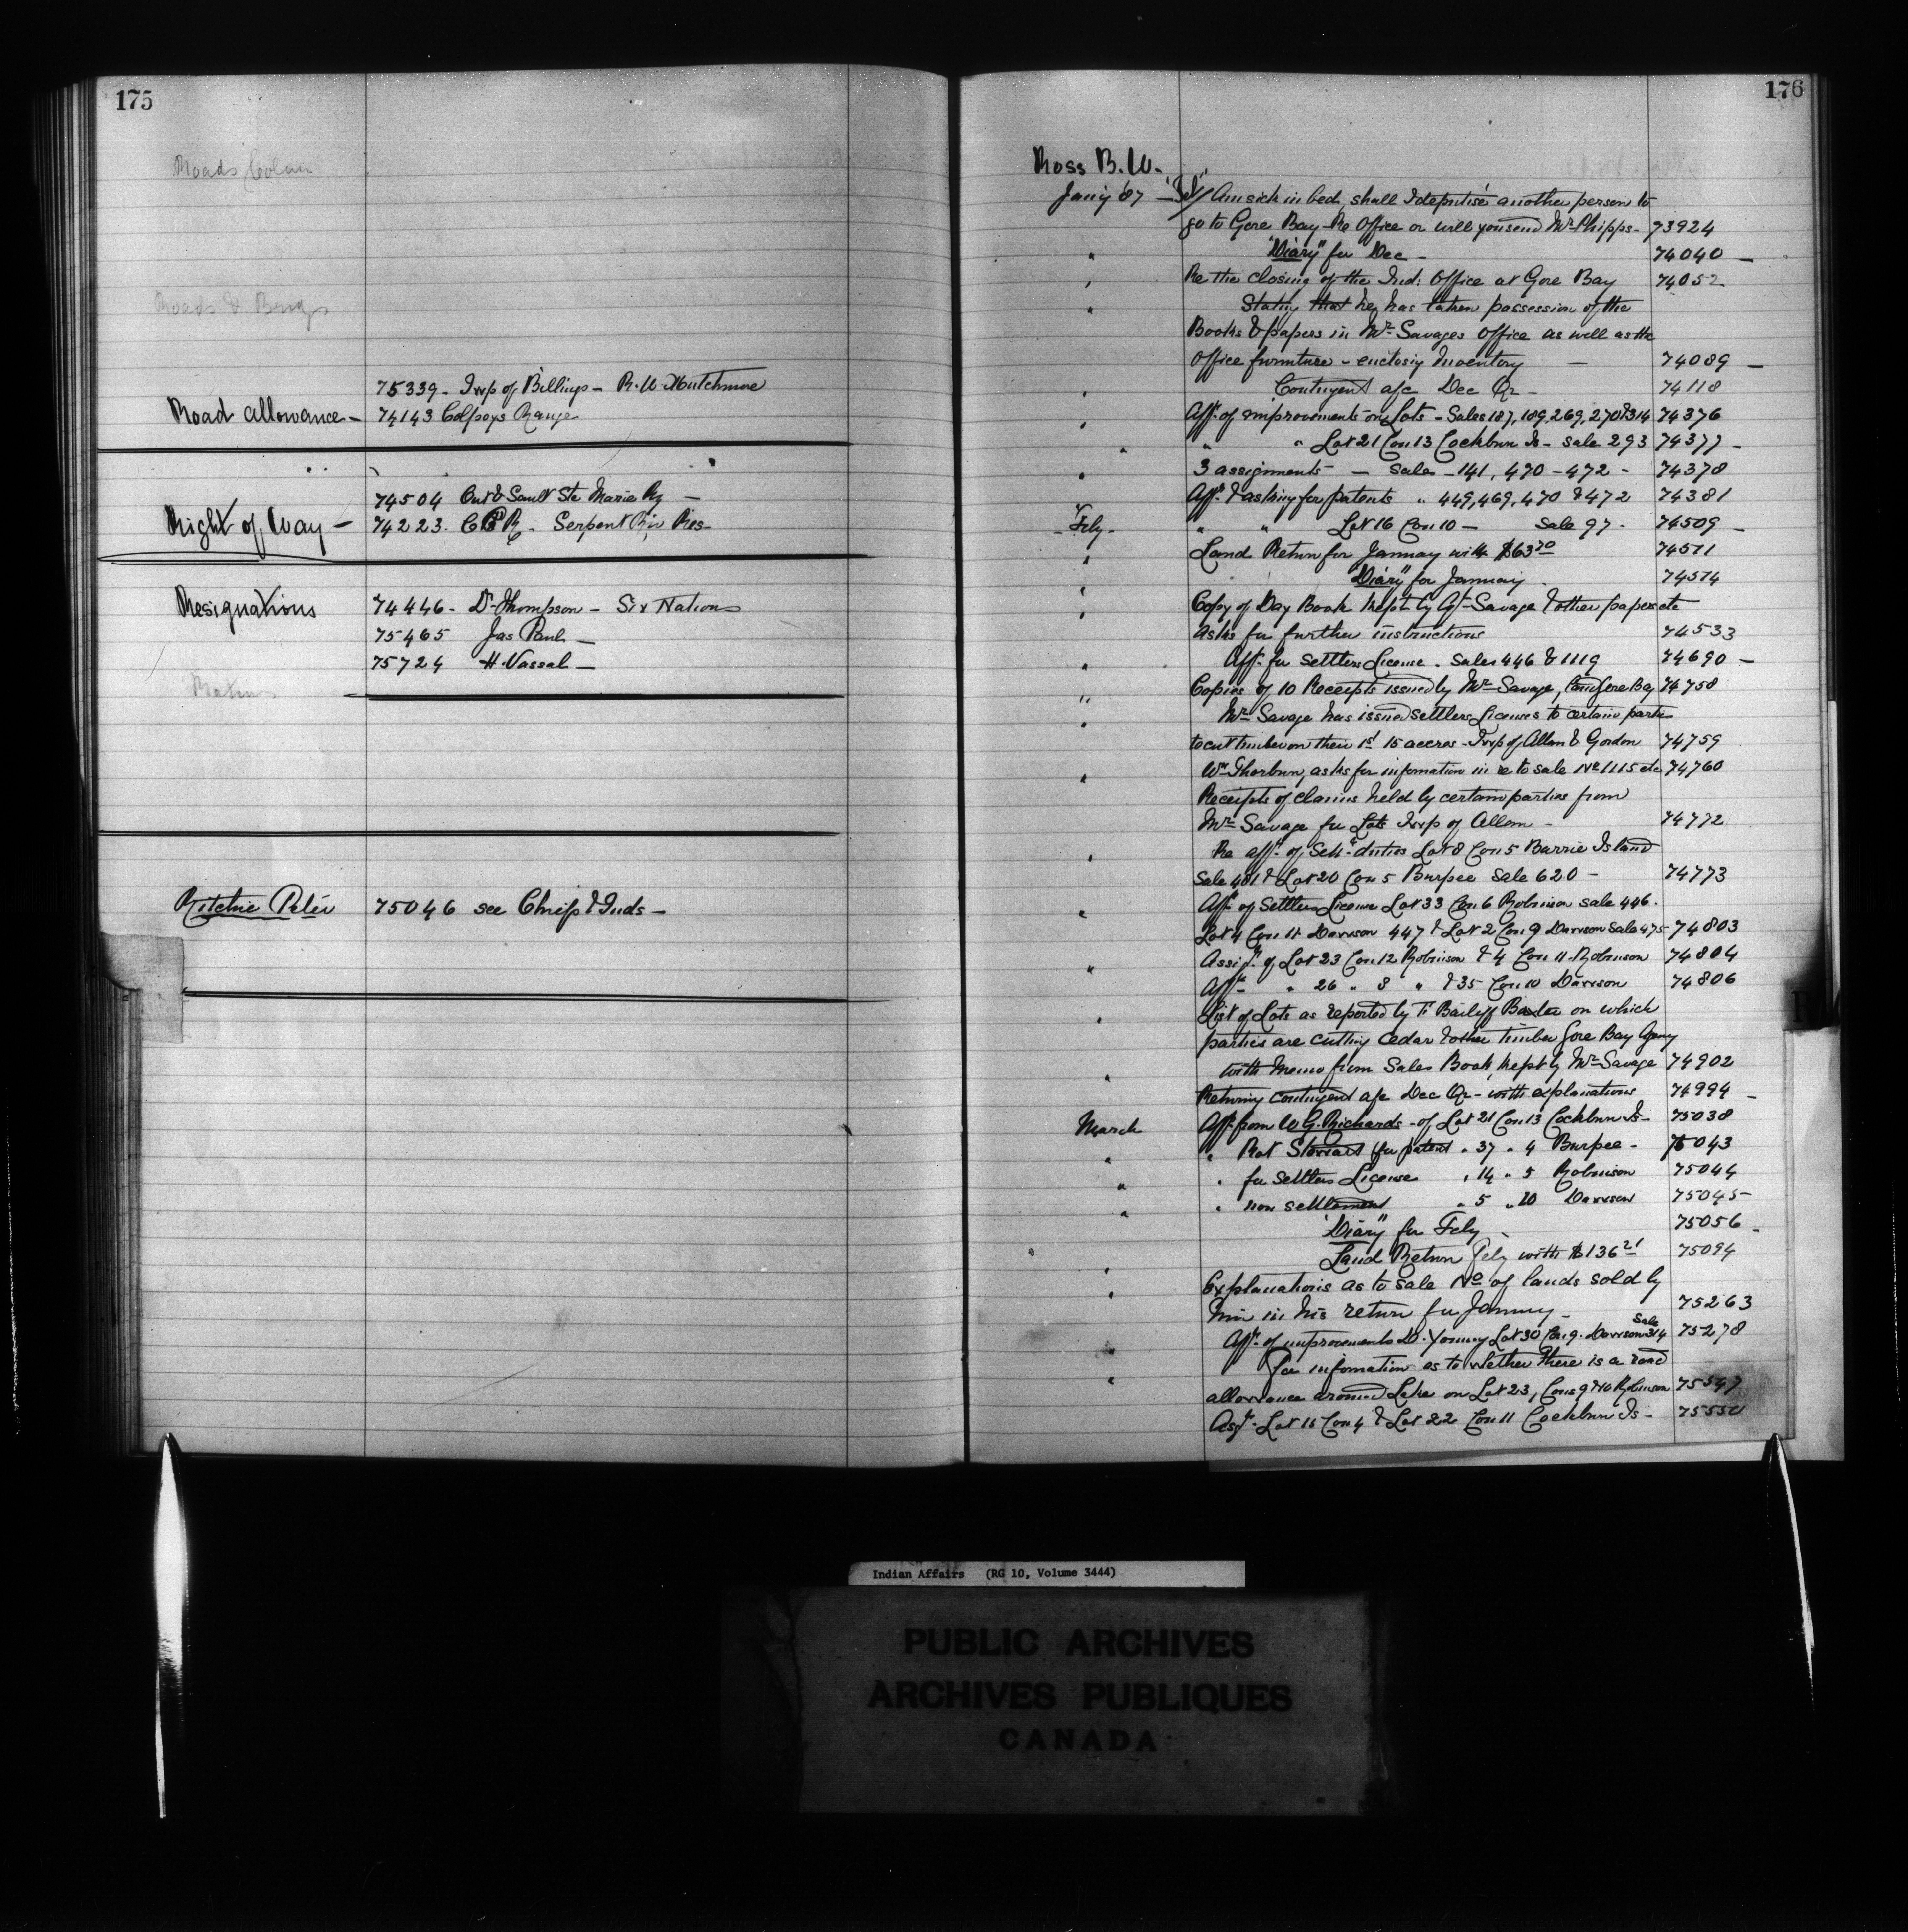 175
Roads Colon
Roads & Bridgs
75339 - Twp of Billings - R. W. Hutchmore
Road Allowance - 74143 Colpoys Range
74504 Ont & Sault Ste Marie Ry -
Right of Way - 74223. C P R - Serpent Riv Res -
Resignations 74446 - Dr Thompson - Six Nations
75465 Jas Paul -
75724 H. Vassal -
Ritchie Peter 75046 see Chief & Inds -
176
Ross B. W.
Jany '87 - "Tel" Am sick in bed, shall I deputise another person to
go to Gore Bay - Re Office or will you send Mr Phipps - 73924
" "Diary" for Dec - 74040 -
" Re the closing of the Ind: Office at Gore Bay 74052
" Stating that he has taken possession of the
Books & papers in Mr Savages Office as well as the
Office furniture - enclosing Inventory - 74089 -
" Contingent a/c Dec Qr - 74118
" Affts of improvements on Lots - Sales 187, 189, 269, 270 & 314 74376
" " " Lot 21 Con 13 Cockburn Is - Sale 293 74377 -
" 3 assignments - Sales - 141, 470 - 472 - 74378
" Affts & asking for patents " 449, 469, 470 & 472 74381
- Feby - " " Lot 16 Con 10 - Sale 97 - 74509 -
" Land Return for January with $63 70 74511
" "Diary" for January - 74514
" Copy of Day Book kept by Agt Savage & other papers etc
Asks for further instructions 74533
" Afft for Settlers License - Sales 446 & 1119 74690 -
" Copies of 10 Receipts issued by Mr Savage, Gore Bay 74758
" Mr Savage has issued settlers Licenses to certain parties
to cut timber on their 1st 15 accres - Twp of Allan & Gordon 74759
" Wm Thorburn, asks for infomation in re to sale No 1115 etc 74760
Receipts of claims held by certain parties from
Mr Savage for Lots Twp of Allan - 74772
" Re afft of Sett. duties Lot 8 Con 5 Barrie Island
Sale 481 & Lot 20 Con 5 Burpee Sale 620 - 74773
" Afft of Settlers License Lot 33 Con 6 Robinson Sale 446 -
Lot 4 Con 11 Dawson 447 & Lot 2 Con 9 Dawson Sale 475 - 74803
" Assigt of Lot 23 Con 12 Robinson & 4 Con 11 Robinson 74804
Afft - " 26 " 8 " & 35 Con 10 Dawson 74806
" List of Lots as reported by Bailiff Baxter on which
parties are cutting cedar & other timber Gore Bay Agency
" with Memo from Sales Book, kept by Mr Savage 74902
Returning contingent a/c Dec Qr - with explanations 74994 -
March Afft from W. G. Richards - of Lot 21 Con 13 Cockburn Is - 75038
" " Rot Stewart (for patent " 37 " 4 Burpee - 75043
" " for Settlers License " 14 " 5 Robinson 75044
" " non settlement " 5 " 10 Dawson 75045 -
"Diary" for Feby - 75056 -
" Land Return Feby with $136 21 75094
" Explanations as to Sale No of lands sold by
him in his return for January - 75263
" Afft of improvements D. Young Lot 30 Con 9 - Dawson Sale 314 75278
" For infomation as to whether there is a road
allowance around Lake on Lot 23, Cons 9 & 10 Robinson 75547
Asgt - Lot 15 Con 4 & Lot 22 Con 11 Cockburn Is - 75550
Indian Affairs (RG 10, Volume 3444)
PUBLIC ARCHIVES
ARCHIVES PUBLIQUES
CANADA